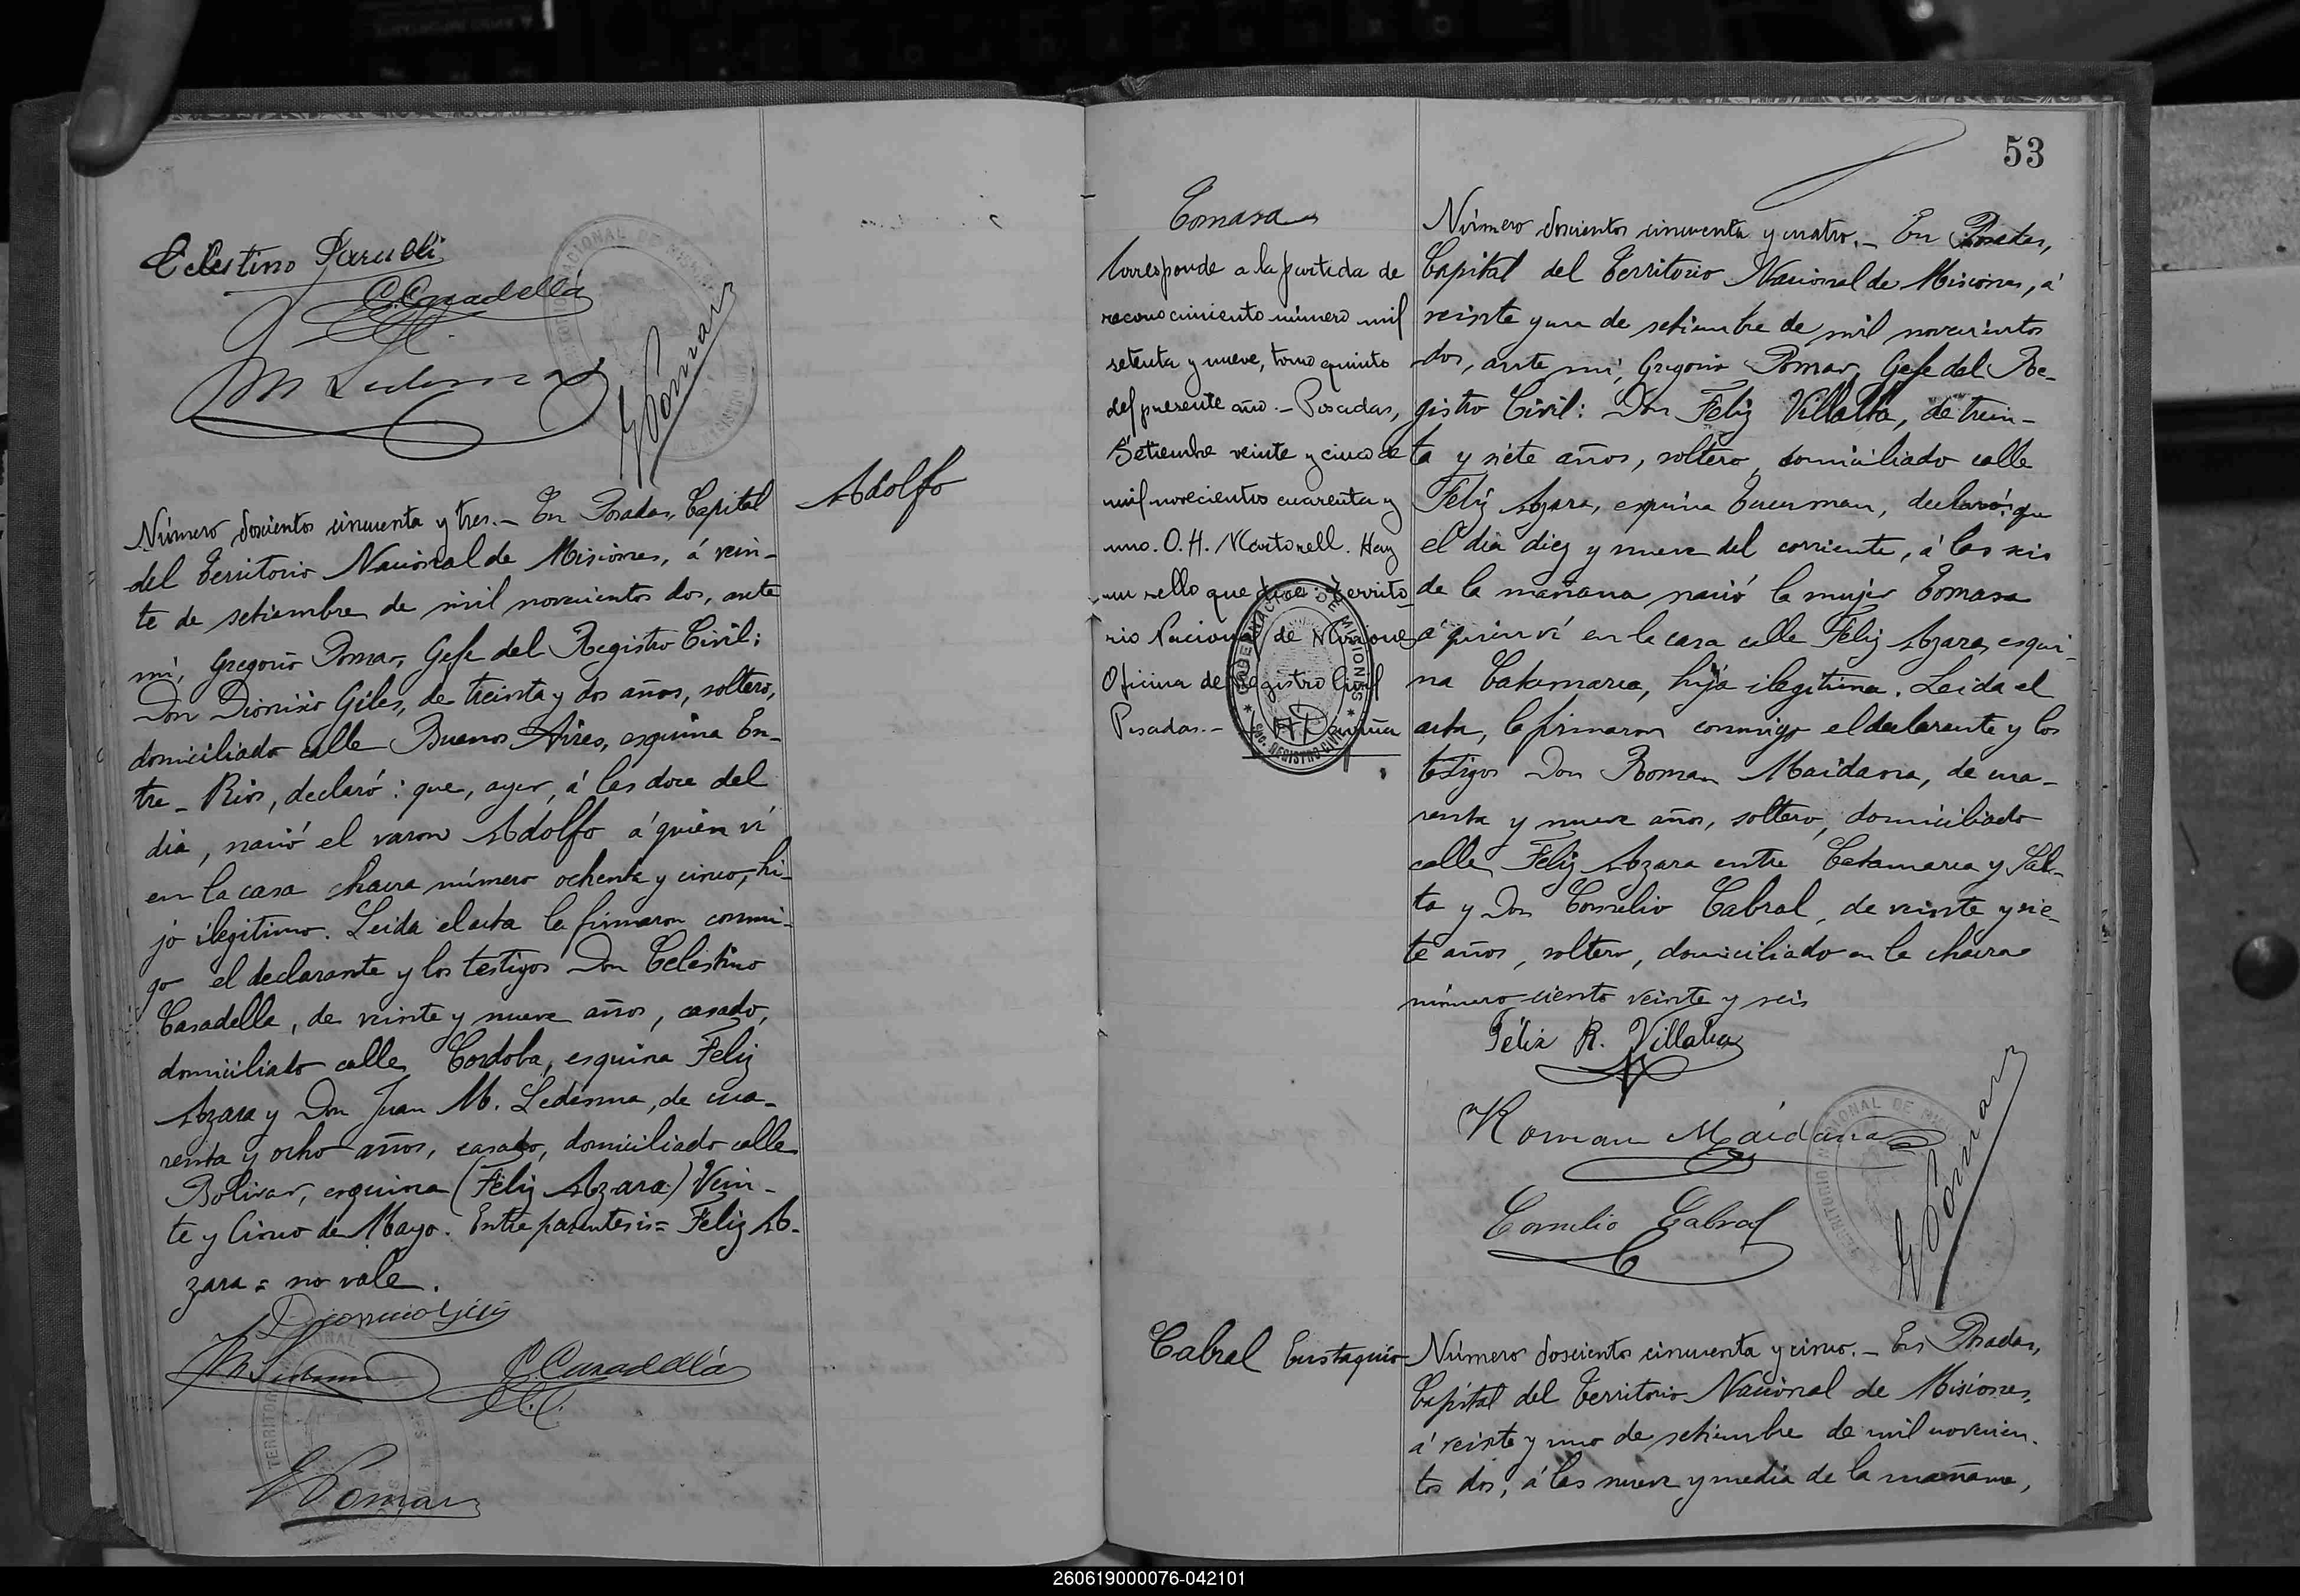 Celestino
C. Casadella
M Ledesma
G Pomar
Adolfo
Número doscientos cincuenta y tres.- En Posadas, Capital
del Territorio Nacional de Misiones, á vein-
te de setiembre de mil novecientos dos, ante
mí, Gregorio Pomar, Gefe del Registro Civil;
Don Dionisio Giles, de treinta y dos años, soltero,
domiciliado calle Buenos Aires, esquina En-
tre-Rios, declaró: que, ayer, á las doce del
dia, nació el varon Adolfo á quien ví
en la casa chacra número ochenta y cinco, hi-
jo ilegitimo. Leida el acta la firmaron conmi-
go el declarante y los testigos Don Celestino
Casadella, de veinte y nueve años, casado,
domiciliado calle Cordoba, esquina Feliz
Azara y Don Juan M. Ledesma, de cua-
renta y ocho años, casado, domiciliado calle
Bolivar, esquina (Feliz Azara) Vein-
te y Cinco de Mayo. Entre parentesis= Feliz A-
zara = no vale.
Dionicio Giles
M Ledesma
C. Casadella
G Pomar
53
Tomasa
Corresponde a la partida de
reconocimiento número mil
setenta y nueve, tomo quinto
del presente año.- Posadas,
Setiembre veinte y cinco de
mil novecientos cuarenta y
uno. O. H. Martorell. Hay
un sello que dice: Territo-
rio Nacional de Misiones
Oficina del Registro Civil
Posadas.-
GOBERNACION DE MISIONES
Número doscientos cincuenta y cuatro.- En Posadas,
Capital del Territorio Nacional de Misiones, á
veinte y un de setiembre de mil novecientos
dos, ante mí, Gregorio Pomar, Gefe del Re-
gistro Civil: Don Feliz Villalba, de trein-
ta y siete años, soltero, domiciliado calle
Feliz Azara, esquina Tucuman, declaró: que
el dia diez y nueve del corriente, á las seis
de la mañana nació la mujer Tomasa
á quien ví en la casa calle Feliz Azara, esqui-
na Catamarca, hija ilegitima. Leida el
acta, la firmaron conmigo el declarante y los
testigos Don Roman Maidana, de cua-
renta y nueve años, soltero, domiciliado
calle Feliz Azara entre Catamarca y Sal-
ta y Don Cornelio Cabral, de veinte y sie-
te años, soltero, domiciliado en la chacra
número ciento veinte y seis
Félix R. Villalba
Roman Maidana
Cornelio Cabral
G Pomar
Cabral Eustaquio
Número doscientos cincuenta y cinco.- En Posadas,
Capital del Territorio Nacional de Misiones,
á veinte y uno de setiembre de mil novecien-
tos dos, á las nueve y media de la mañana,
260619000076-042101